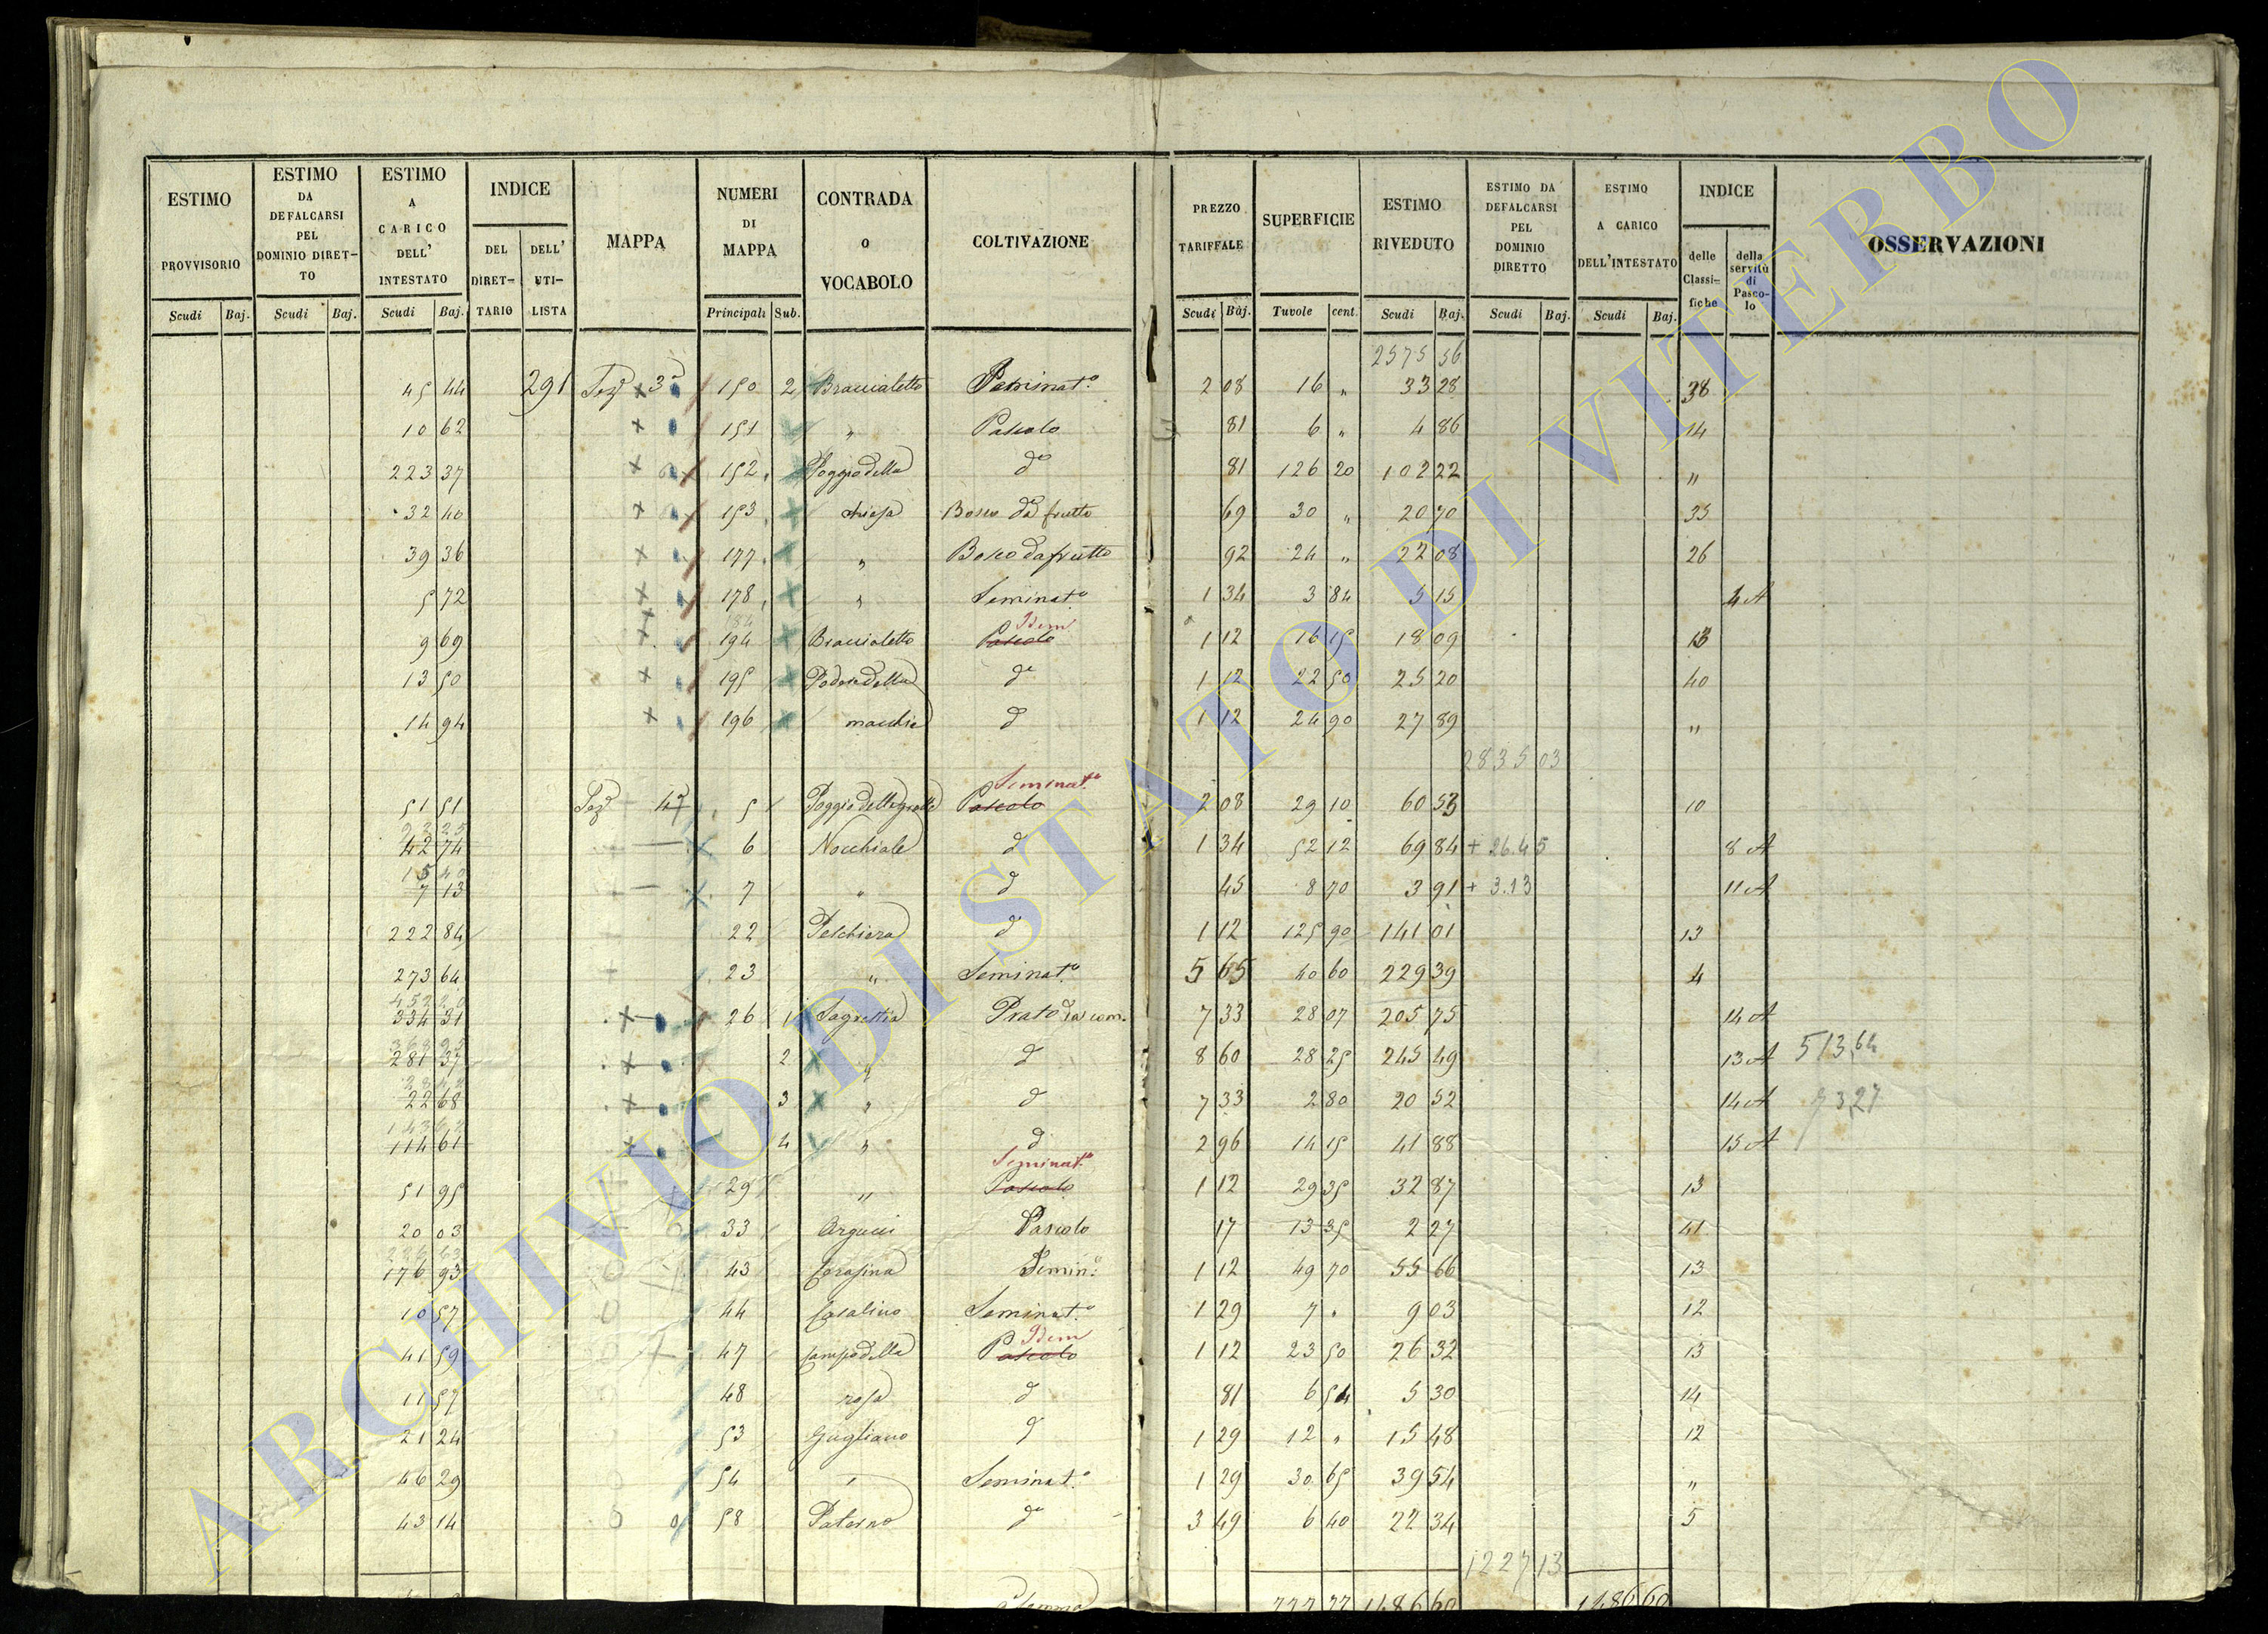 ESTIMO PROVVISORIO Scudi Baj.
ESTIMO DA DEFALCARSI PEL DOMINIO DIRET-TO Scudi Baj.
ESTIMO A CARICO DELL' INTESTATO Scudi Baj.
INDICE DEL DIRET-TARIO DELL' UTI-LISTA
MAPPA
NUMERI DI MAPPA Principali Sub.
CONTRADA O VOCABOLO
COLTIVAZIONE
PREZZO TARIFFALE Scudi Baj.
SUPERFICIE Tavole cent.
ESTIMO RIVEDUTO Scudi Baj.
ESTIMO DA DEFALCARSI PEL DOMINIO DIRETTO Scudi Baj.
ESTIMO A CARICO DELL'INTESTATO Scudi Baj.
INDICE delle Classi-fiche della servitù di Pasco-lo
OSSERVAZIONI
2575 56
45 44 291 3ª 150 2 Braccialetto Seminat.º 2 08 16 „ 33 28 38
10 62 151 „ Pascolo 81 6 „ 4 86 14
223 37 152 Poggio della dº 81 126 20 102 22 „
32 40 153 chiesa Bosco da frutto 69 30 „ 20 70 35
39 36 177 „ Bosco da frutto 92 24 „ 22 08 26
5 72 178 „ Seminat.º 1 34 3 84 5 15 4 A
184
Idem
9 69 194 Braccialetto Pascolo 1 12 16 15 18 09 13
13 50 195 Podere della dº 1 12 22 50 25 20 40
14 94 196 macchia d 1 12 24 90 27 89 „
2835 03
Seminat.º
51 51 4ª 5 Poggio delle grotte Pascolo 2 08 29 10 60 53 10
42 74 6 Nocchiale d 1 34 52 12 69 84 + 26.45 8 A
15 40
7 13 7 „ d 45 8 70 3 91 + 3.13 11 A
222 84 22 Peschiera d 1 12 125 90 141 01 13
273 64 23 „ Seminat.º 5 65 40 60 229 39 4
452 20
334 31 26 1 Sagrestia Prato da com. 7 33 28 07 205 75 14 A
281 37 2 „ d 8 60 28 25 245 49 13 A 513,64
22 68 3 „ d 7 33 2 80 20 52 14 A
114 61 4 „ d 2 96 14 15 41 88 15 A
Seminat.º
51 95 29 „ Pascolo 1 12 29 35 32 87 13
20 03 33 Argucci Pascolo 17 13 35 2 27 41
176 93 43 Cerasina Semin.º 1 12 49 70 55 66 13
10 57 44 Casalino Seminat.º 1 29 7 „ 9 03 12
Idem
41 59 47 Campo della Pascolo 1 12 23 50 26 32 13
11 57 48 rosa d 81 6 54 5 30 14
21 24 53 Gugliano d 1 29 12 „ 15 48 12
46 29 54 „ Seminat.º 1 29 30 65 39 54 „
43 14 58 Paterno dº 3 49 6 40 22 34 5
1227 13
777 77 1486 60 1486 60
ARCHIVIO DI STATO DI VITERBO